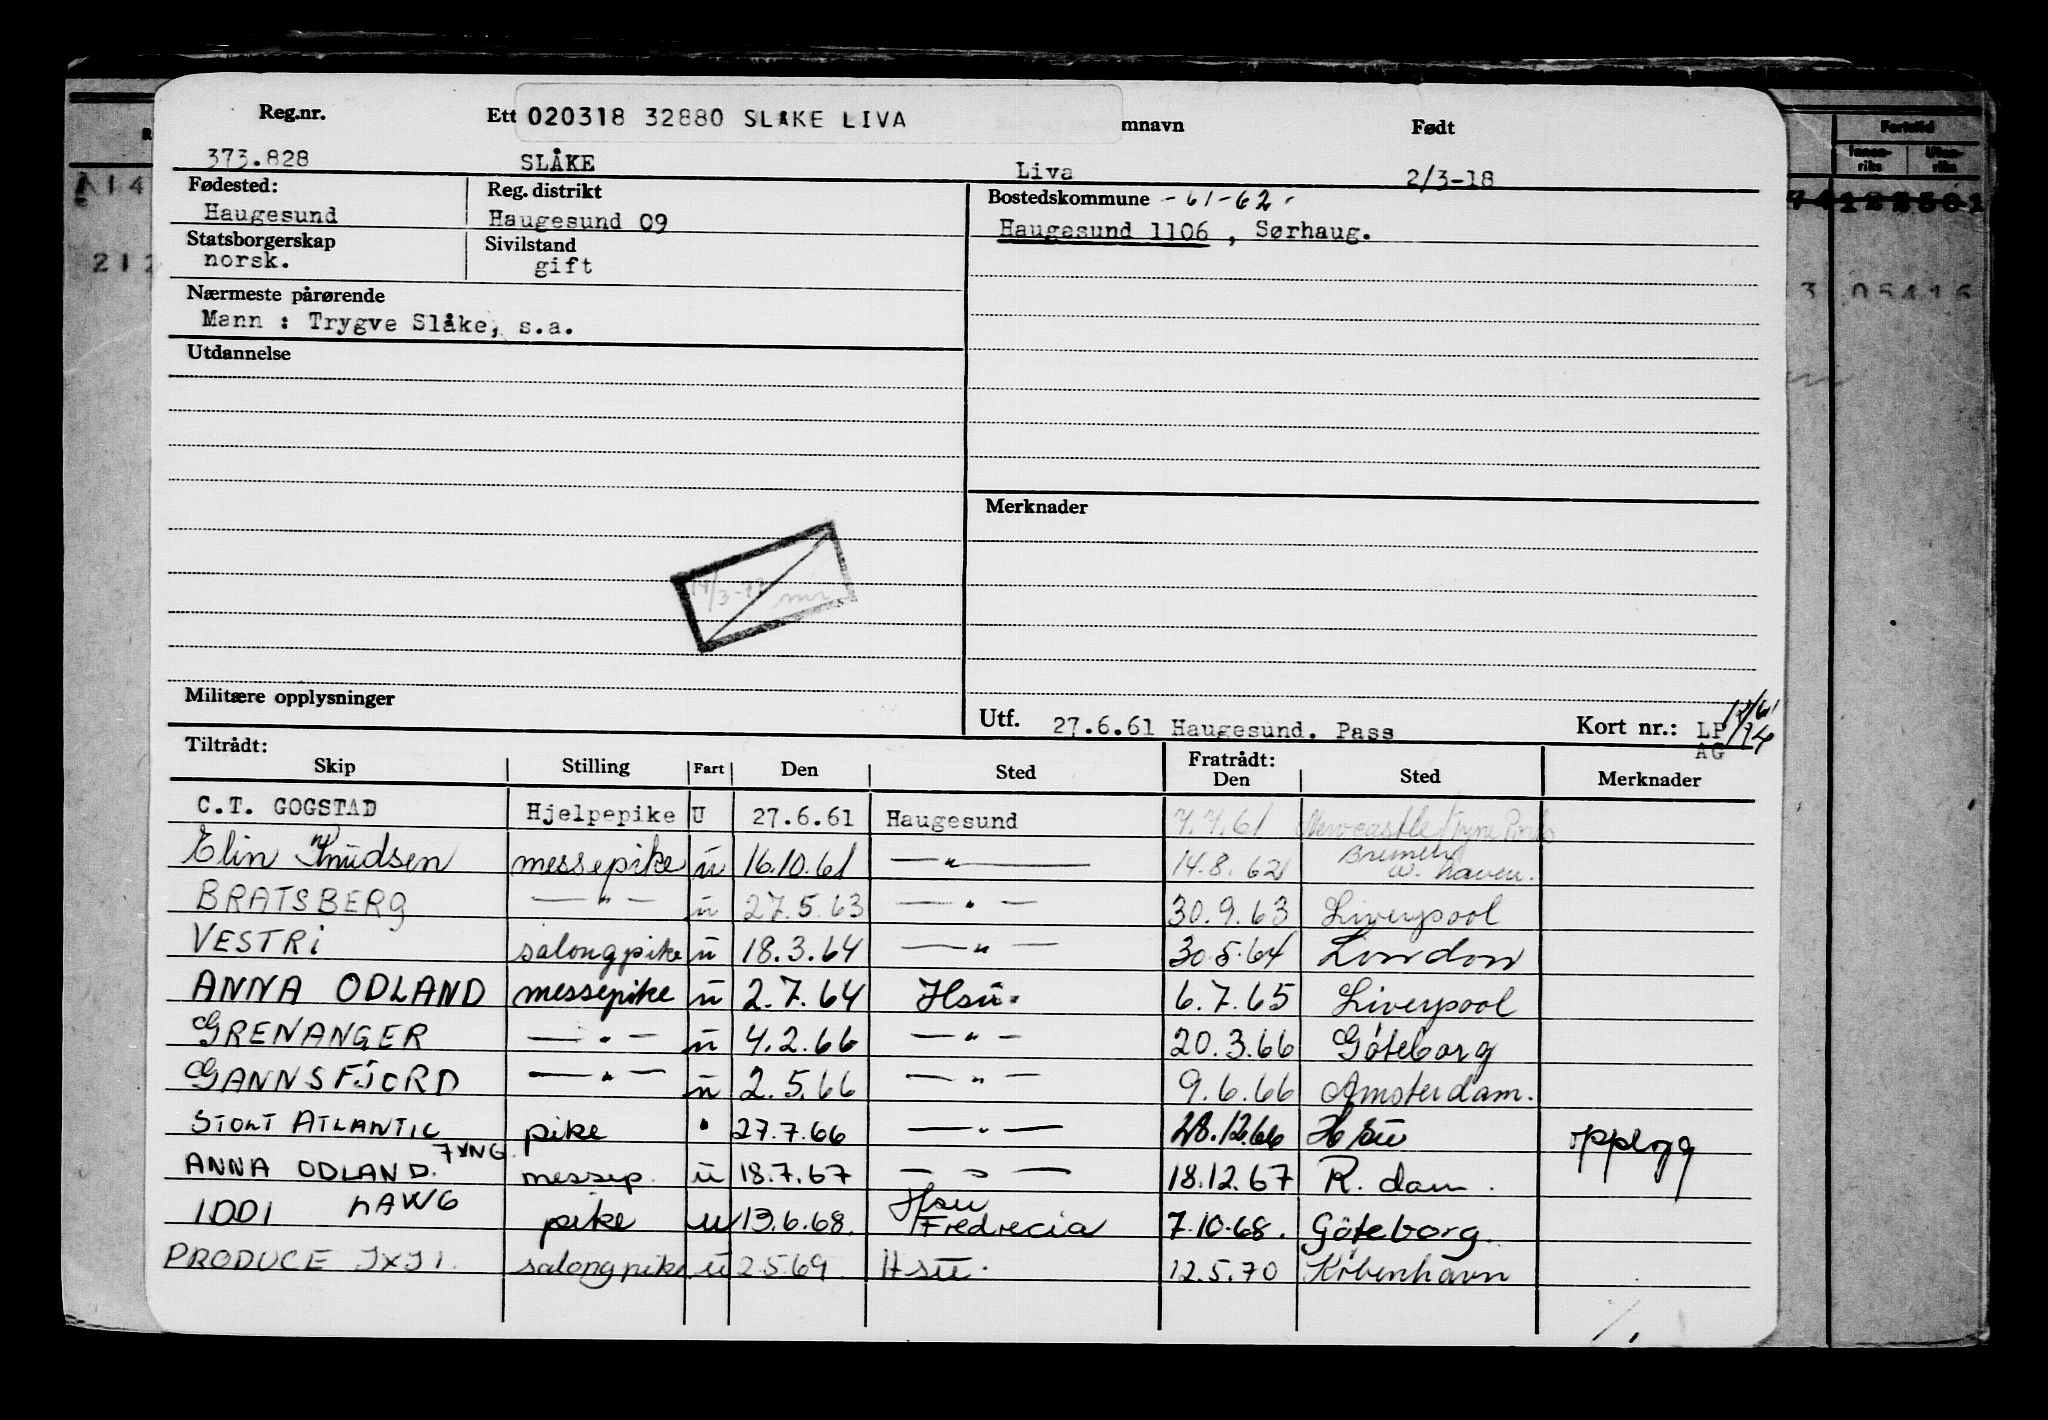 Reg.nr. Ett 020318 32880 SLÅKE LIVA mnavn Født
373.828 SLÅKE Liva 2/3-18
Fødested: Reg. distrikt Bostedskommune -61-62-
Haugesund Haugesund 09 Haugesund 1106 , Sørhaug.
Statsborgerskap Sivilstand
norsk. gift
Nærmeste pårørende
Mann : Trygve Slåke, s.a.
Utdannelse
Merknader
Militære opplysninger
Utf. 27.6.61 Haugesund. Pass Kort nr.: LP
AG
Tiltrådt: Fratrådt:
Skip Stilling Fart Den Sted Den Sted Merknader
C.T. GOGSTAD Hjelpepike U 27.6.61 Haugesund 7.7.61 Newcastle Tyne
Elin Knudsen messepike u 16.10.61 — " — 14.8.62 Bremen
w. haven.
BRATSBERG — " — u 27.5.63 — " — 30.9.63 Liverpool
VESTRI salongpike u 18.3.64 — " — 30.5.64 London
ANNA ODLAND messepike u 2.7.64 Hsu. 6.7.65 Liverpool
GRENANGER — " — u 4.2.66 — " — 20.3.66 Göteborg
GANNSFJORD — " — u 2.5.66 — " — 9.6.66 Amsterdam.
STOLT ATLANTIC pike " 27.7.66 — " — 28.12.66 Hsu opplegg
ANNA ODLAND. 7XNG messep. u 18.7.67 — " — 18.12.67 R. dam.
IDDI LAWG pike u 13.6.68. Hsu
Fredrecia 7.10.68. Göteborg.
PRODUCE JXJI. salongpike u 2.5.69 Hsu. 12.5.70 København